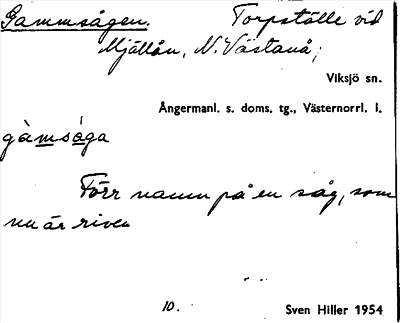 Gammsågen. Torpställe vid
Mjällån, N. Västanå,
Viksjö sn.
Ångermanl. s. doms. tg., Västernorrl. l.
gàmsåga
Förr namn på en såg, som
nu är riven
10.
Sven Hiller 1954